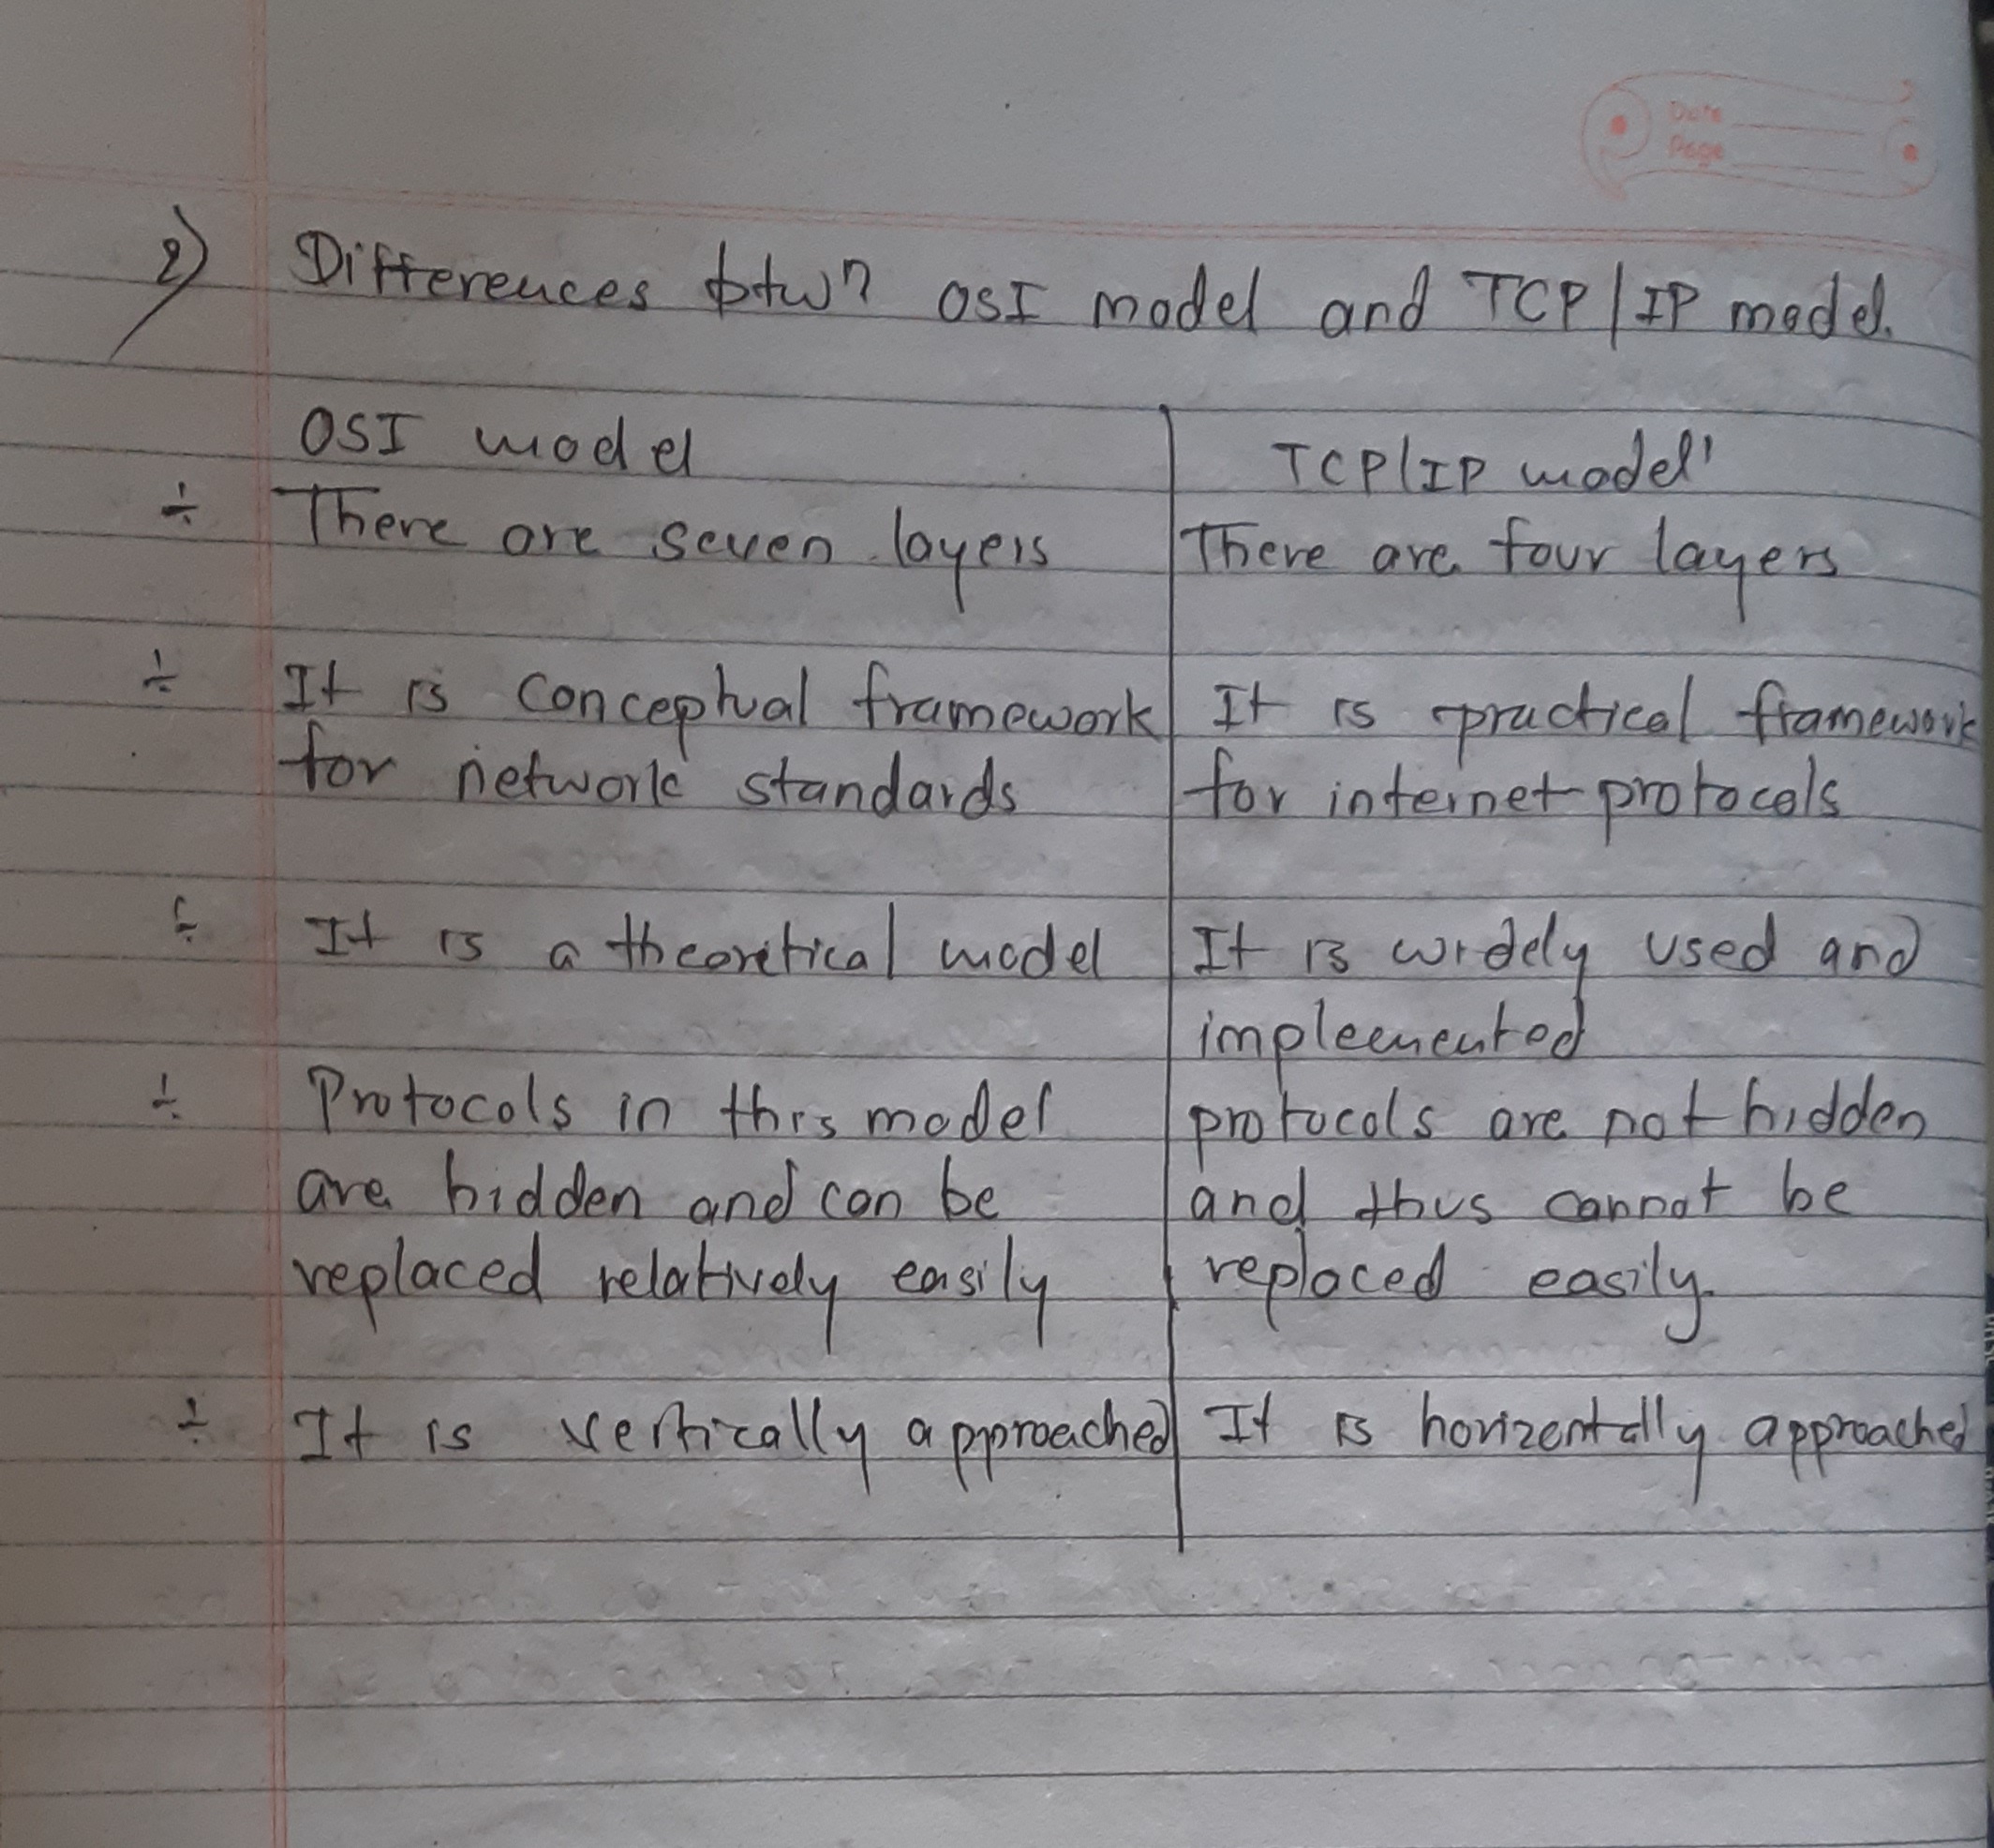 Date
Page
2) Differences btwn OSI model and TCP/IP model.
OSI model
TCP/IP model
÷ There are seven layers
There are four layers
÷ It is conceptual framework
for network standards
It is practical framework
for internet protocols
÷ It is a theoretical model
It is widely used and
impleemented
÷ Protocols in this model
are hidden and can be
replaced relatively easily
protocols are not hidden
and thus cannot be
replaced easily.
÷ It is vertically approached
It is horizentally approached